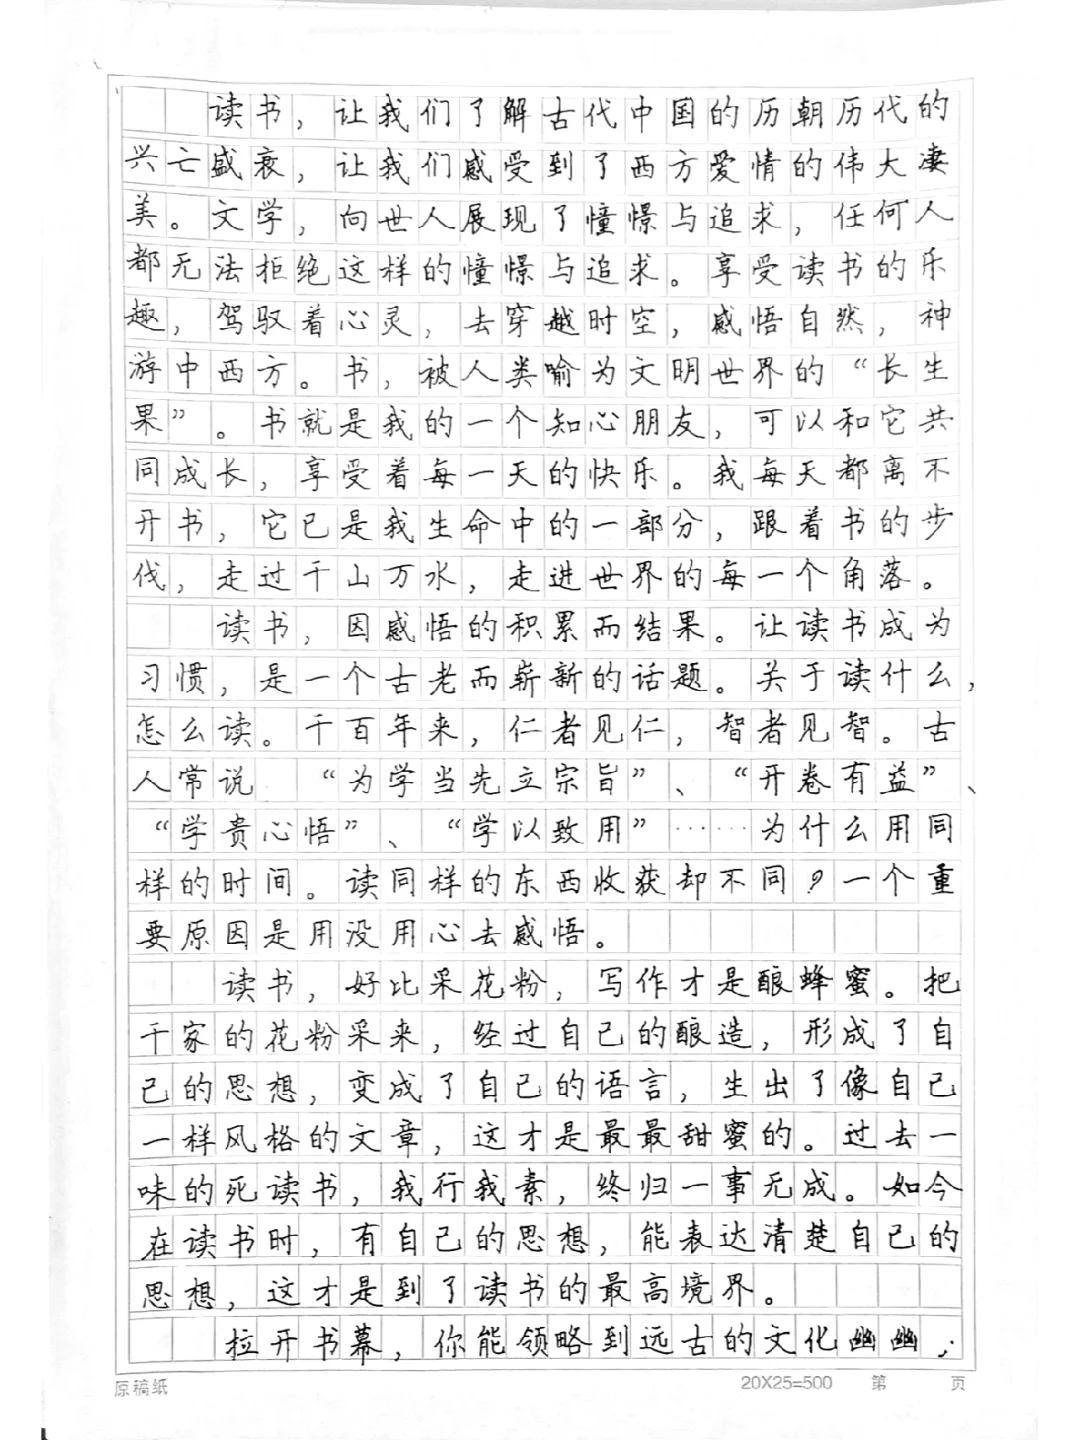 读书，让我们了解古代中国的历朝历代的
兴亡盛衰，让我们感受到了西方爱情的伟大凄
美。文学，向世人展现了憧憬与追求，任何人
都无法拒绝这样的憧憬与追求。享受读书的乐
趣，驾驭着心灵，去穿越时空，感悟自然，神
游中西方。书，被人类喻为文明世界的“长生
果”。书就是我的一个知心朋友，可以和它共
同成长，享受着每一天的快乐。我每天都离不
开书，它已是我生命中的一部分，跟着书的步
伐，走过千山万水，走进世界的每一个角落。
读书，因感悟的积累而结果。让读书成为
习惯，是一个古老而崭新的话题。关于读什么，
怎么读。千百年来，仁者见仁，智者见智。古
人常说 “为学当先立宗旨”、“开卷有益”、
“学贵心悟”、“学以致用”……为什么用同
样的时间。读同样的东西收获却不同？一个重
要原因是用没用心去感悟。
读书，好比采花粉，写作才是酿蜂蜜。把
千家的花粉采来，经过自己的酿造，形成了自
己的思想，变成了自己的语言，生出了像自己
一样风格的文章，这才是最最甜蜜的。过去一
味的死读书，我行我素，终归一事无成。如今
在读书时，有自己的思想，能表达清楚自己的
思想，这才是到了读书的最高境界。
拉开书幕，你能领略到远古的文化幽幽；
原稿纸 20X25=500 第 页